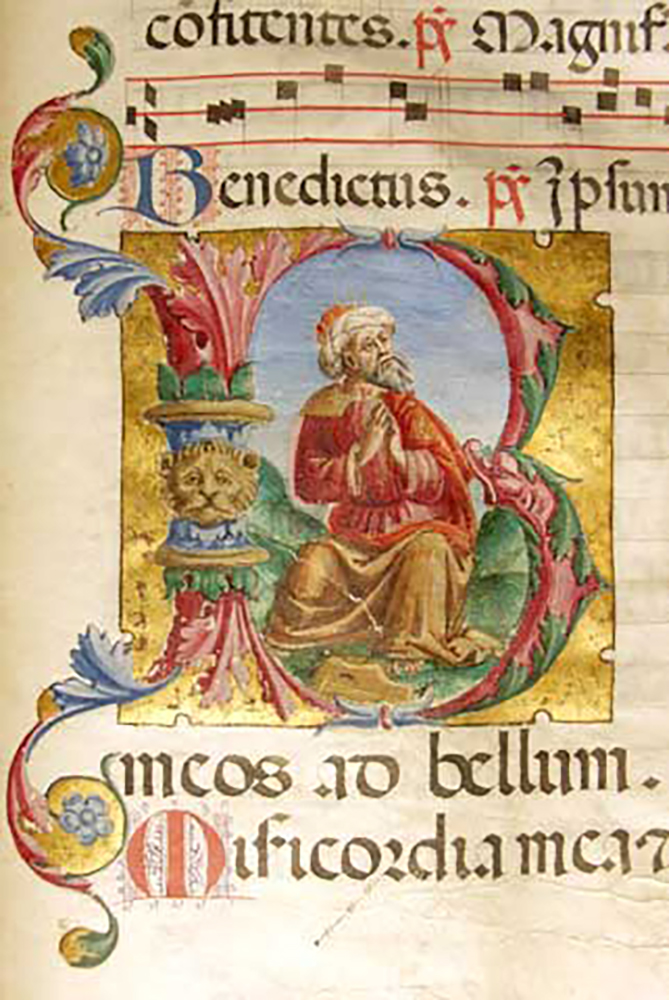 cōfitentes. px̄ Magnif
Benedictus. px̄ Ipsum
B
meos ad bellum.
Misericordia mea ⁊